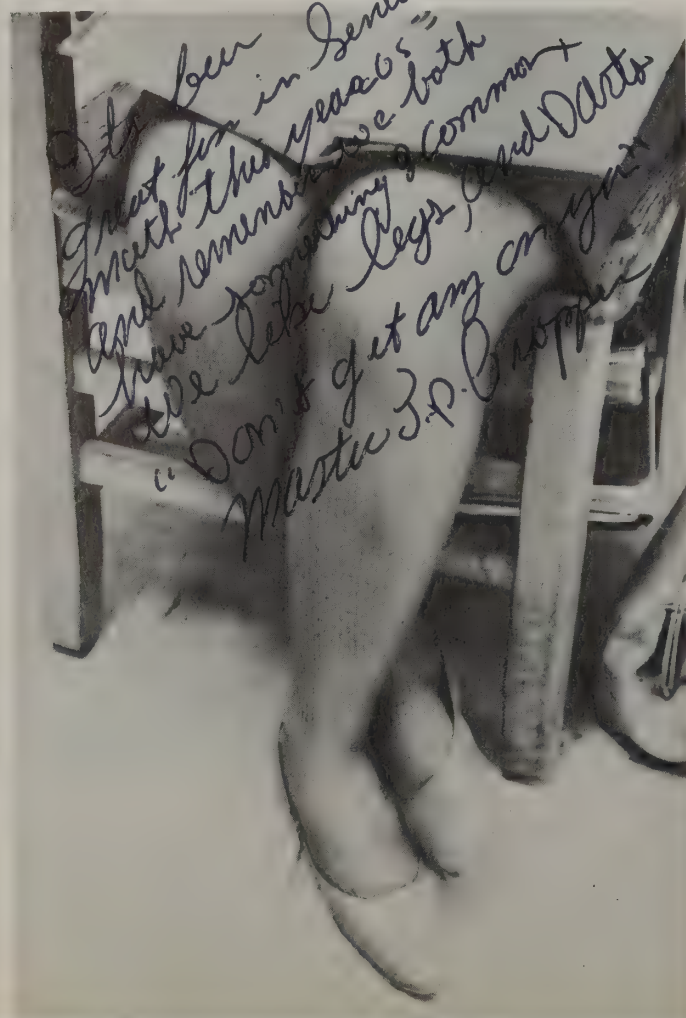 Its been
great fun in Seni
math this year as"
and remember we both
have something & common +
We like legs, and Darts
"Don't get any on ya"
Master T.P. Propper